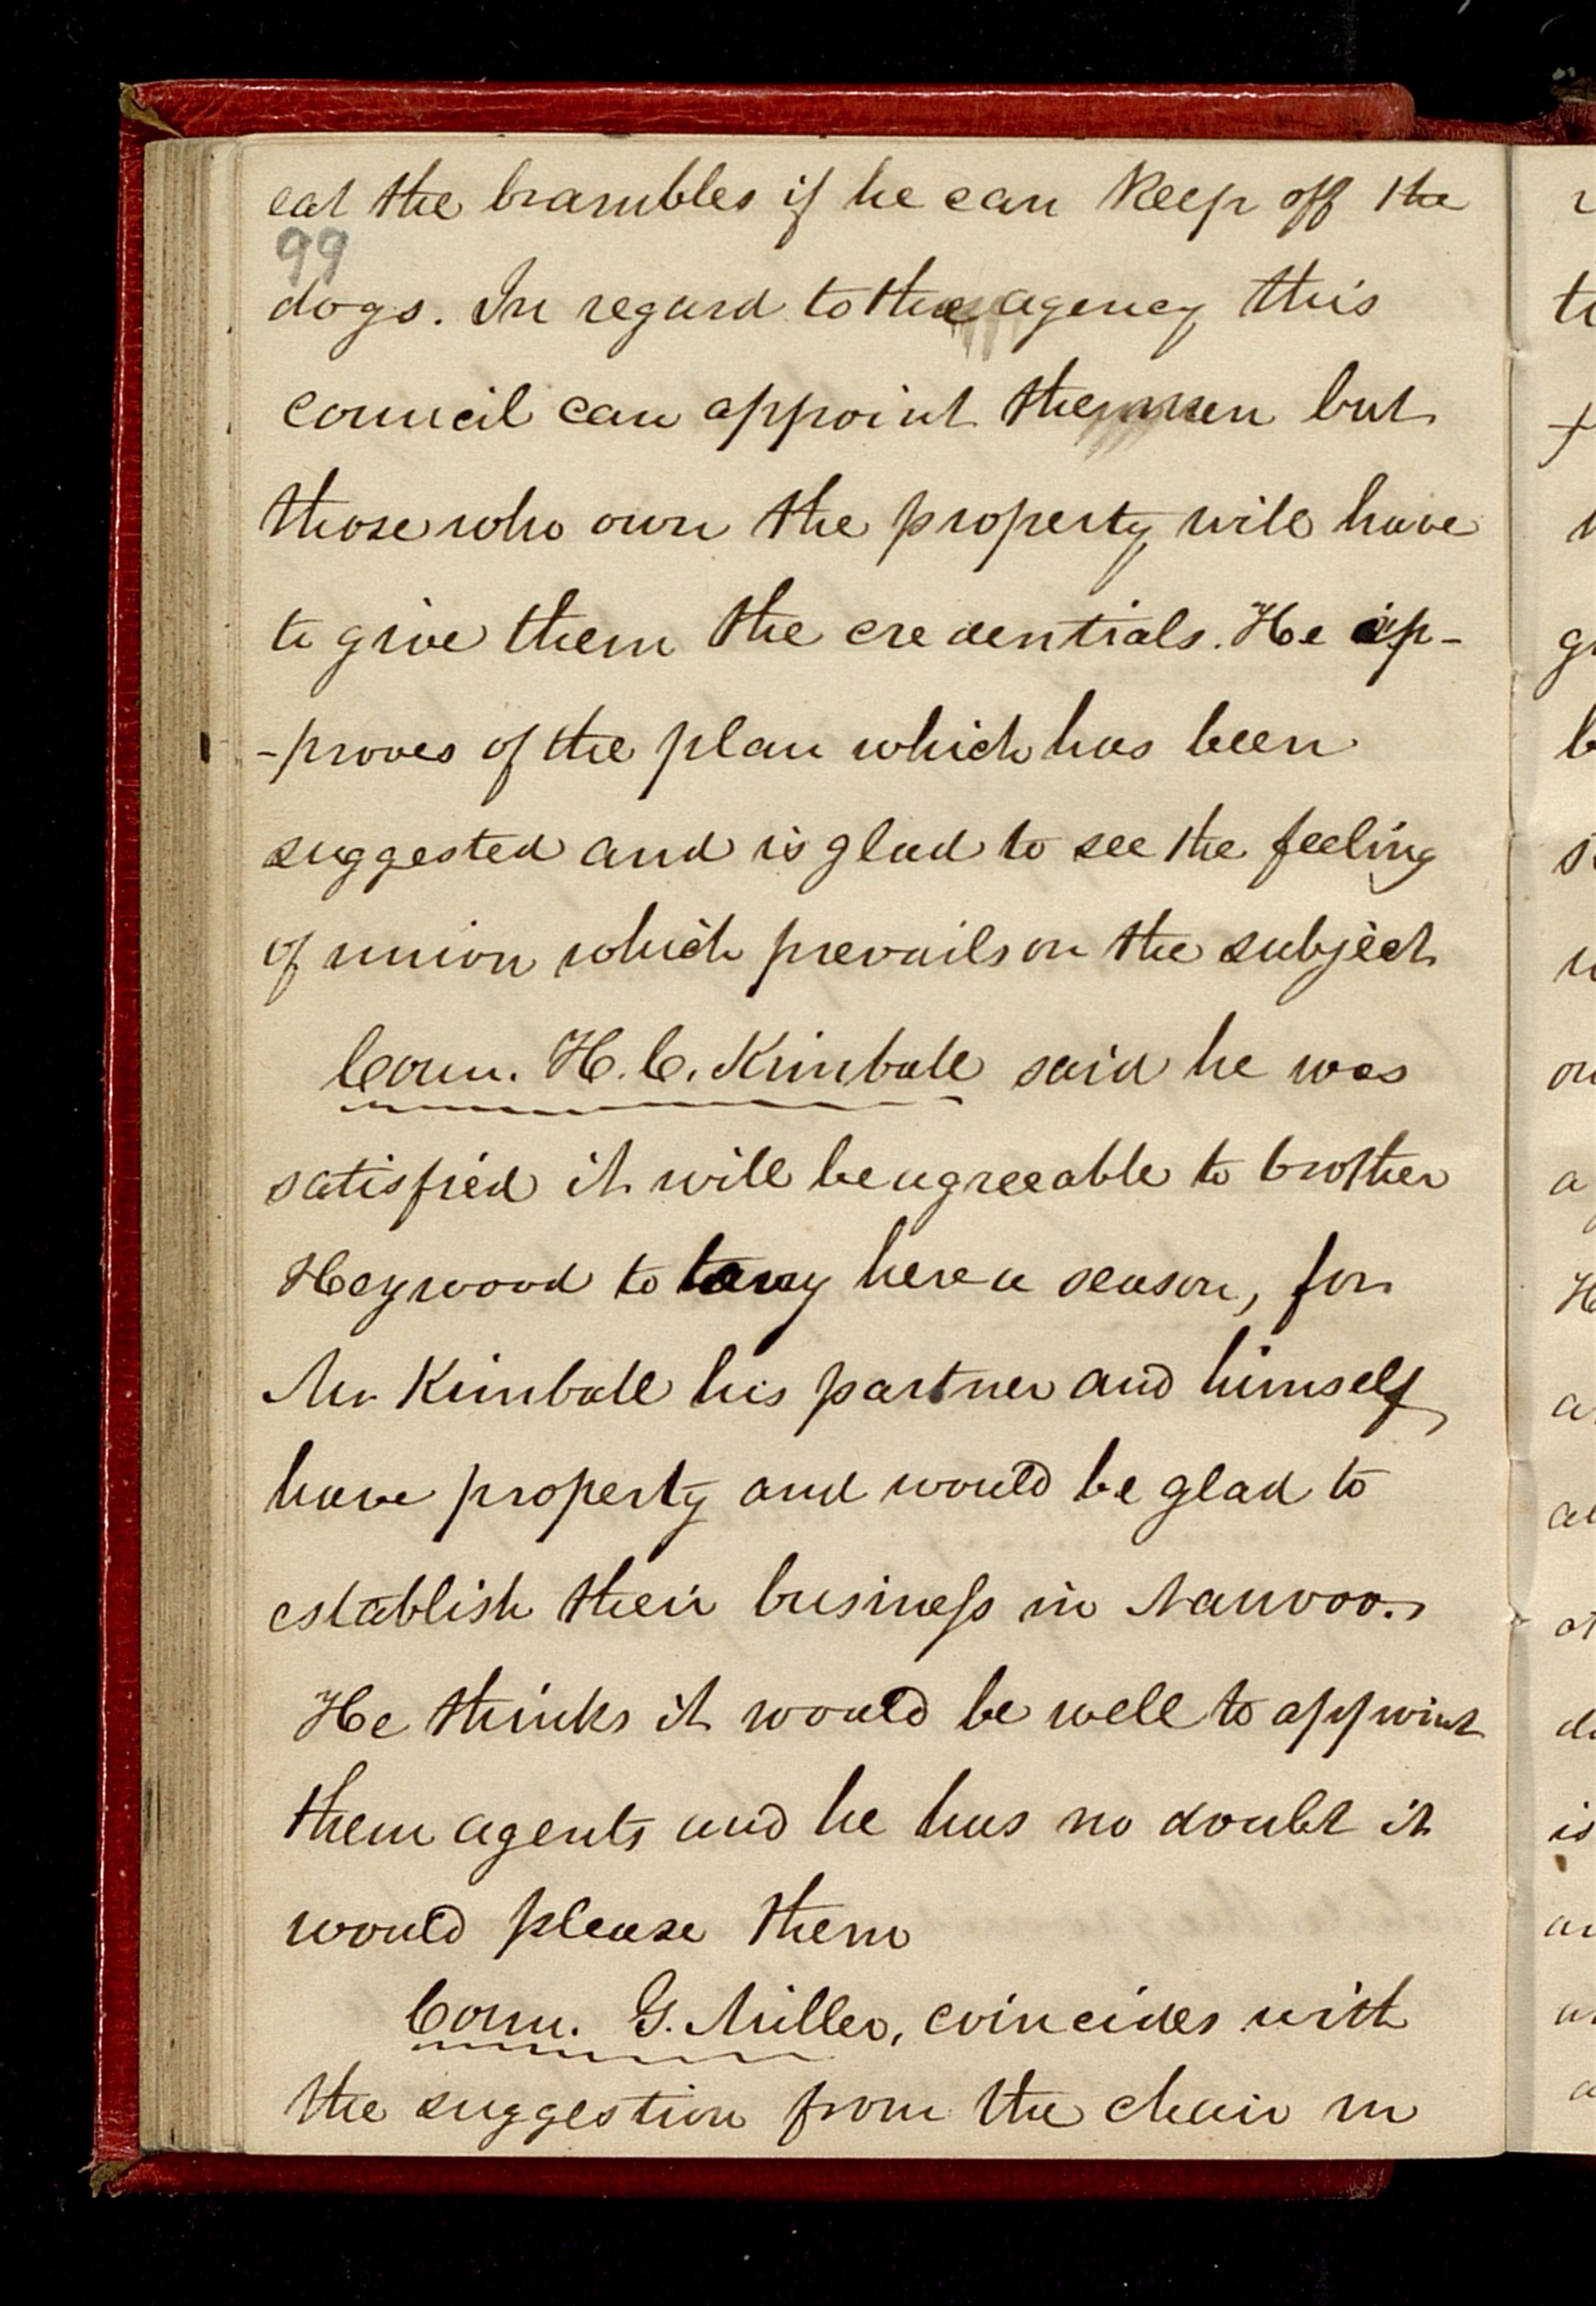 eat the brambles if he can keep off the
99
dogs. In regard to the agency this
council can appoint the men but
those who own the property will have
to give them the credentials. He ap-
-proves of the plan which has been
suggested and is glad to see the feeling
of union which prevails on the subject
Coun. H. C. Kimball said he was
satisfied it will be agreeable to brother
Heywood to tarry here a season, for
Mr Kimball his partner and himself
have property and would be glad to
establish their business in Nauvoo.
He thinks it would be well to appoint
them agents and he has no doubt it
would please them
Coun. G. Miller, coincides with
the suggestion from the chair in